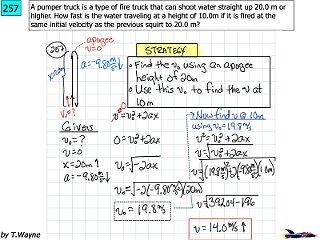 257
A pumper truck is a type of fire truck that can shoot water straight up 20.0 m or
higher. How fast is the water traveling at a height of 10.0m if it is fired at the
same initial velocity as the previous squirt to 20.0 m?
257
apogee
v=0
x=20m
a=-9.80 m/s²↓
v₀=?
STRATEGY
• Find the v₀ using an apogee
height of 20m
• Use this v₀ to find the v at
10m
Givens
v₀=?
v=0
x=20m↑
a=-9.80 m/s²↓
v²=v₀²+2ax
0=v₀²+2ax
v₀=√-2ax
v₀=√-2(-9.80 m/s²)(20m)
v₀=19.8 m/s
Now find v @ 10m
using v₀=19.8 m/s
v²=v₀²+2ax
v=√v₀²+2ax
v=√(19.8 m/s)²+2(-9.80 m/s²)(10m)
v=√392.04-196
v=14.0 m/s ↑
by T.Wayne